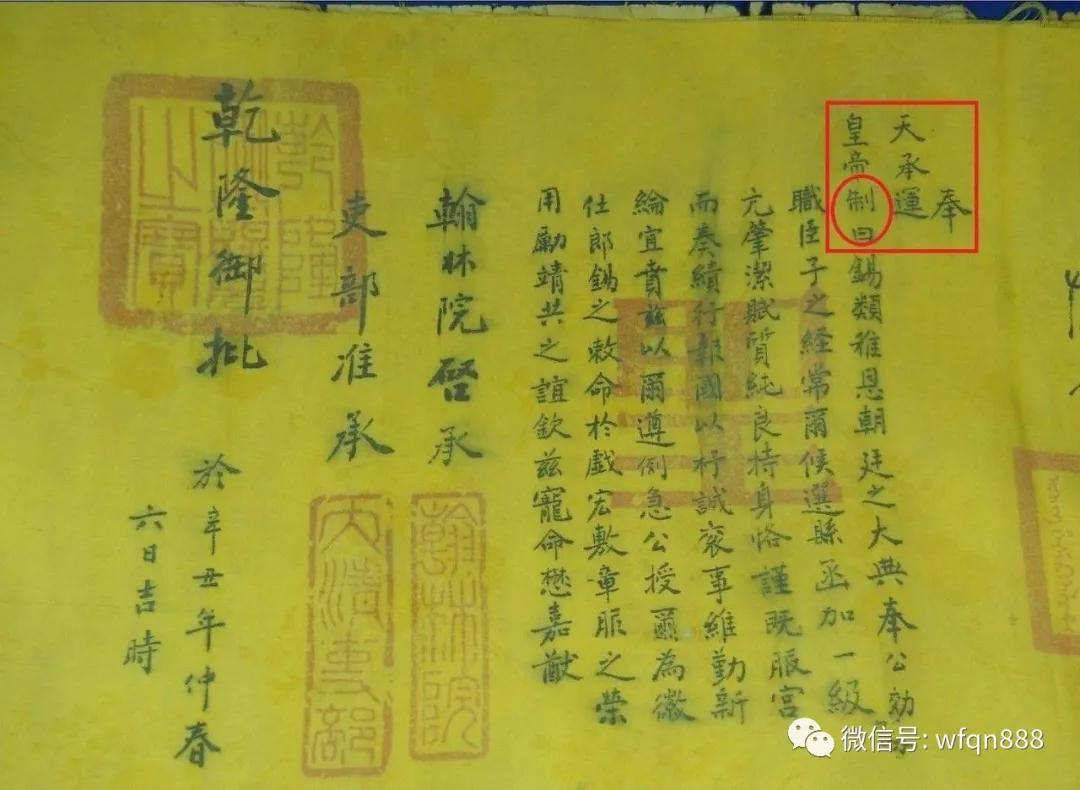 奉
天承運
皇帝制曰錫類雅恩朝廷之大典奉公効
職臣子之経常爾候選縣丞加一級
亢肇潔賦質純良持身恪謹既服宫
而奏績行報國以杼誠衮事維勤新
綸宜賁兹以爾遵例急公授爾為徽
仕郎錫之敕命於戲宏敷章服之榮
用勵靖共之誼欽兹寵命懋嘉猷
翰林院啓承
翰林院
吏部准承
大清吏部
乾隆御批
乾隆御覽之寶
於辛丑年仲春
六日吉時
微信号: wfqn888